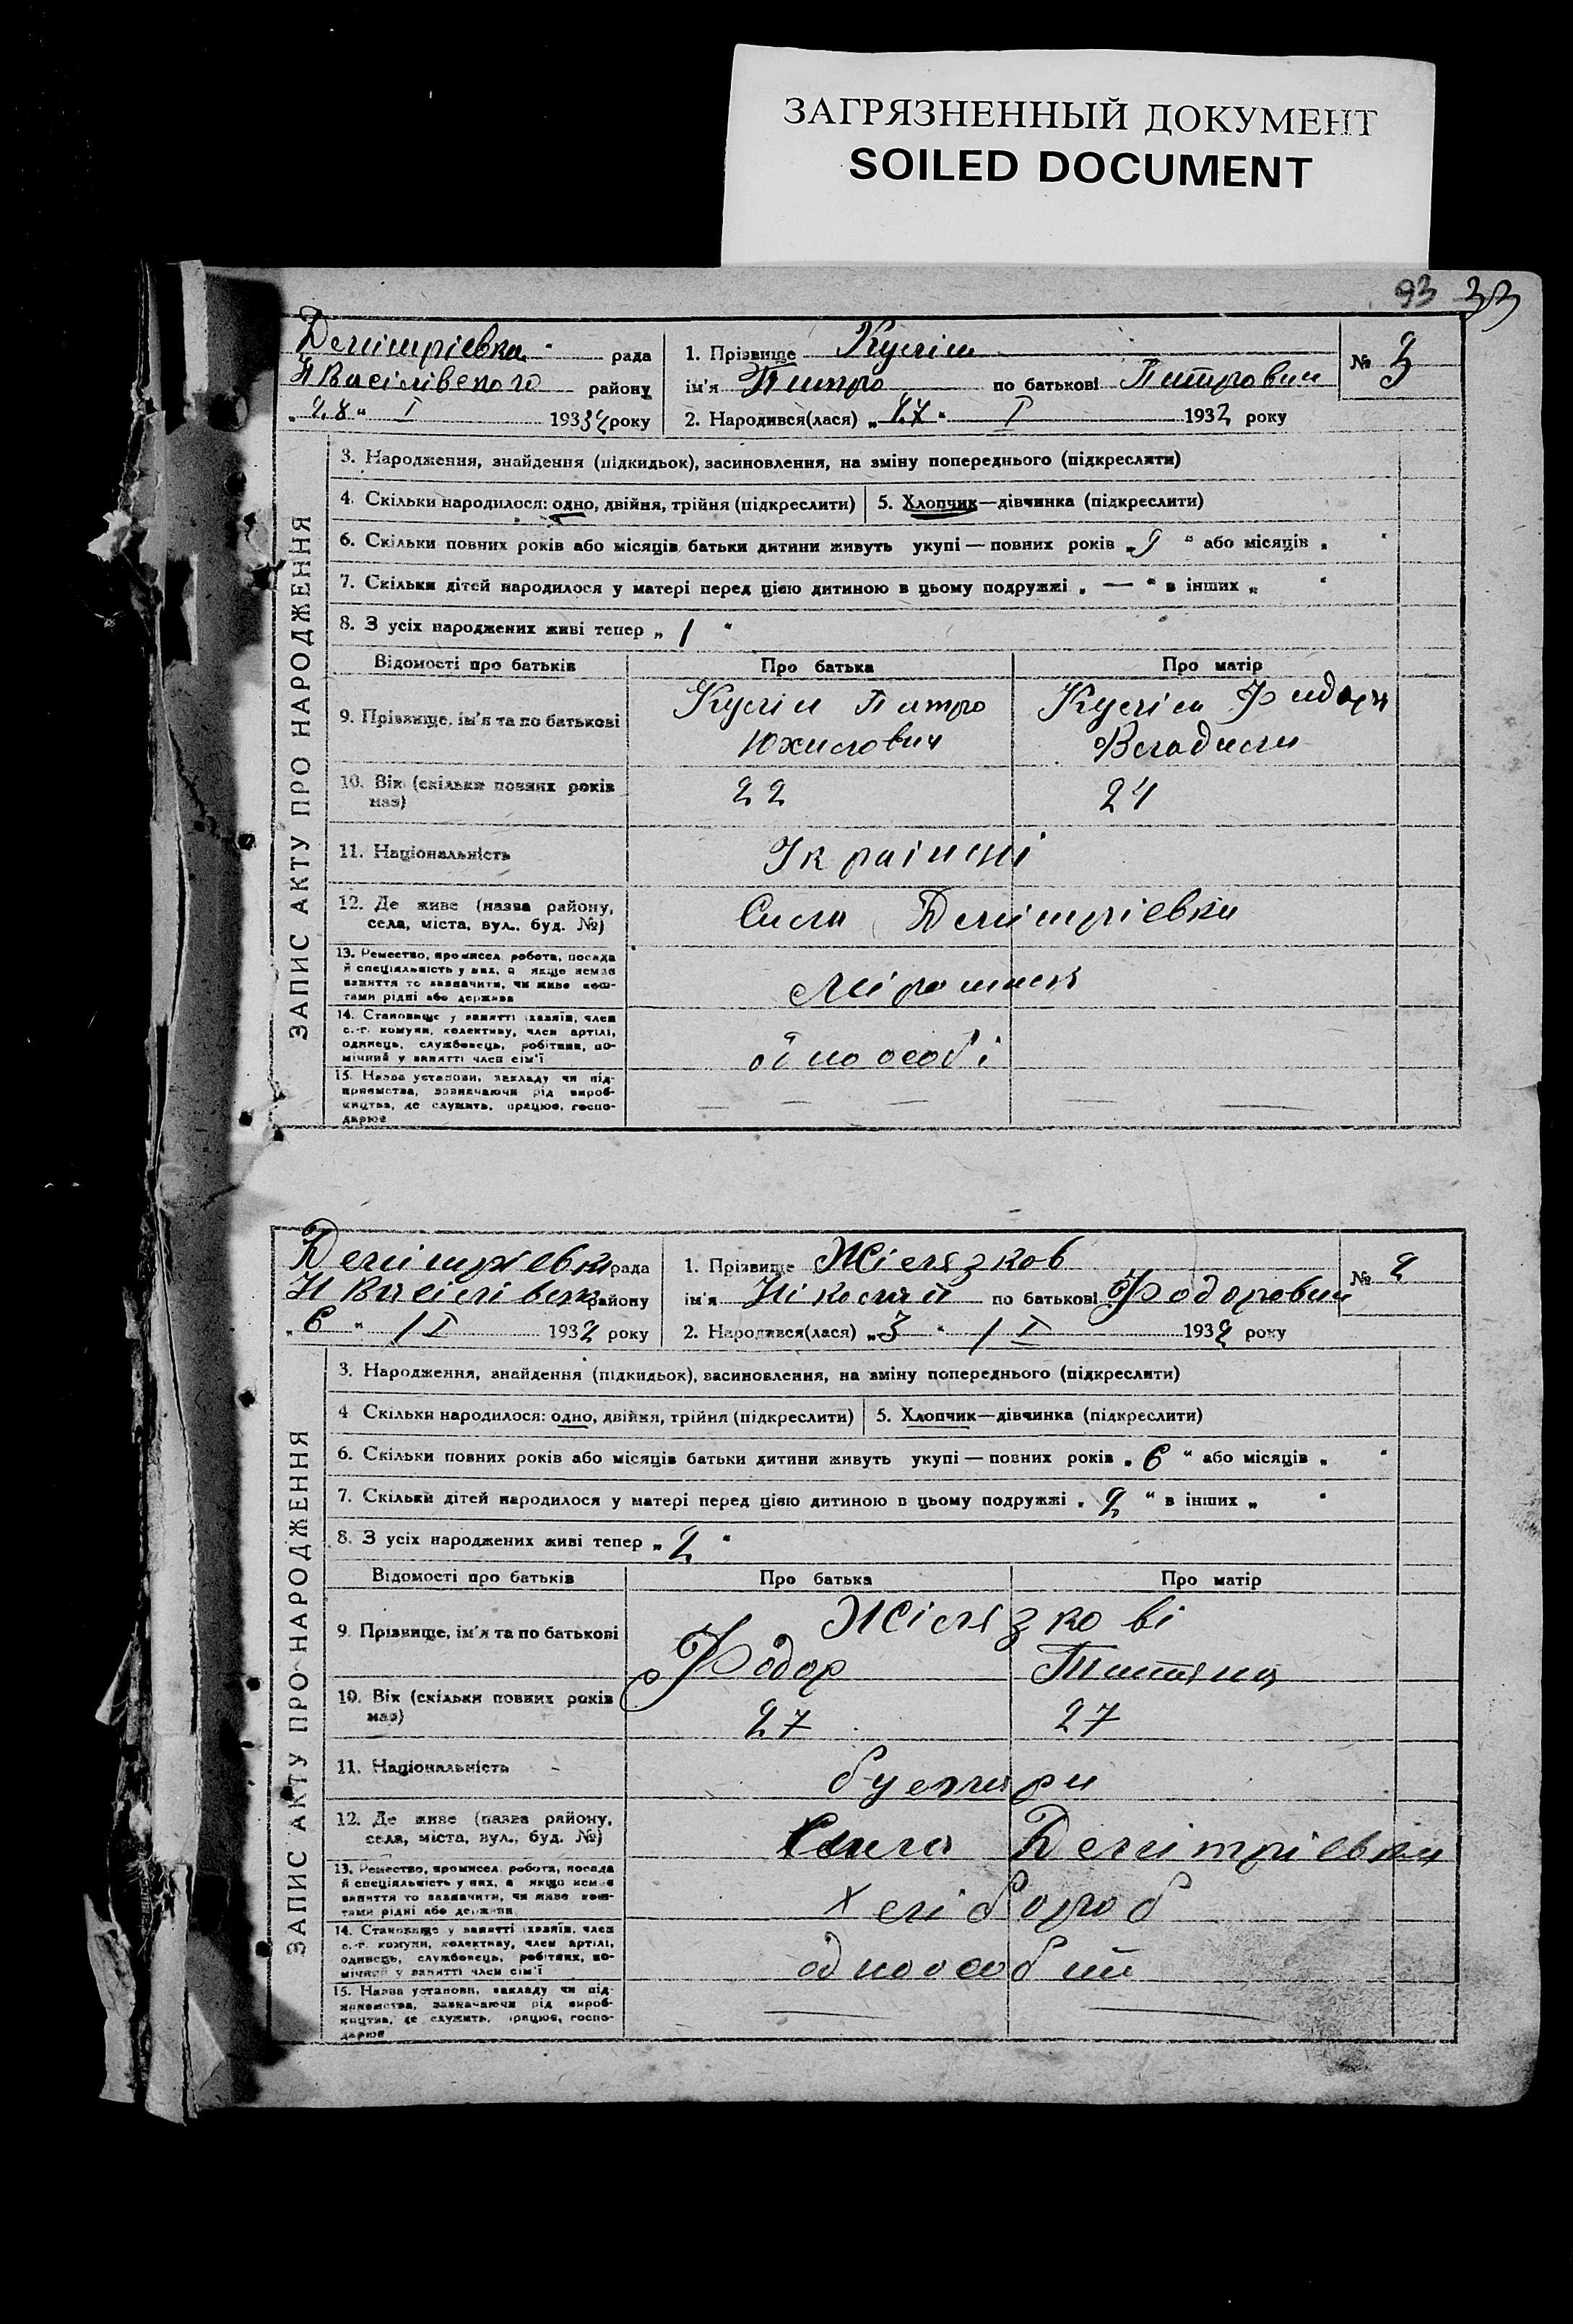 ЗАГРЯЗНЕННЫЙ ДОКУМЕНТ
SOILED DOCUMENT
93 33
ЗАПИС АКТУ ПРО НАРОДЖЕННЯ
Демітріевка рада
району
„28“ I 1932 року
1. Прізвище
ім'я Питро по батькові Питрович
№ 3
2. Народився(лася) „27“ I 1932 року
3. Народження, знайдення (підкидьок), засиновлення, на зміну попереднього (підкреслити)
4. Скільки народилося: одно, двійня, трійня (підкреслити) 5. Хлопчик—дівчинка (підкреслити)
6. Скільки повних років або місяців батьки дитини живуть укупі — повних років „ “ або місяців „ “
7. Скільки дітей народилося у матері перед цією дитиною в цьому подружжі „ — “ в інших „ “
8. З усіх народжених живі тепер „ 1 “
Відомості про батьків Про батька Про матір
9. Прізвище, ім'я та по батькові Питро
10. Вік (скільки повних років має) 22 24
11. Національність Українці
12. Де живе (назва району, села, міста, вул., буд. №) Села Демітріевки
13. Ремество, промисел, робота, посада
й спеціяльність у них, а якщо немає
заняття то зазначити, чи живе кош-
тами рідні або держави
14. Становище у занятті (хазяїн, член
с.-г. комуни, колективу, член артілі,
одинець, службовець, робітник, по-
мічний у занятті член сім'ї одноособі
15. Назва установи, закладу чи під-
приємства, зазначаючи рід вироб-
ництва, де служить, працює, госпо-
дарює
ЗАПИС АКТУ ПРО НАРОДЖЕННЯ
Демітріевка рада
району
„6“ II 1932 року
1. Прізвище Жілязков
ім'я Ніколай по батькові Фодорович
№ 2
2. Народився(лася) „3“ II 1932 року
3. Народження, знайдення (підкидьок), засиновлення, на зміну попереднього (підкреслити)
4 Скільки народилося: одно, двійня, трійня (підкреслити) 5. Хлопчик—дівчинка (підкреслити)
6. Скільки повних років або місяців батьки дитини живуть укупі — повних років „ 6 “ або місяців „ “
7. Скільки дітей народилося у матері перед цією дитиною в цьому подружжі „ 2 “ в інших „ “
8. З усіх народжених живі тепер „ 2 “
Відомості про батьків Про батька Про матір
9. Прізвище, ім'я та по батькові Жілязкові
Фодор Титяна
10. Вік (скільки повних років має) 27 27
11. Національність булгари
12. Де живе (назва району, села, міста, вул., буд. №) Села Демітріевки
13. Ремество, промисел, робота, посада
й спеціяльність у них, а якщо немає
заняття то зазначити, чи живе кош-
тами рідні або держави хлібороб
14. Становище у занятті (хазяїн, член
с.-г. комуни, колективу, член артілі,
одинець, службовець, робітник, по-
мічний у занятті член сім'ї одноособий
15. Назва установи, закладу чи під-
приємства, зазначаючи рід вироб-
ництва, де служить, працює, госпо-
дарює